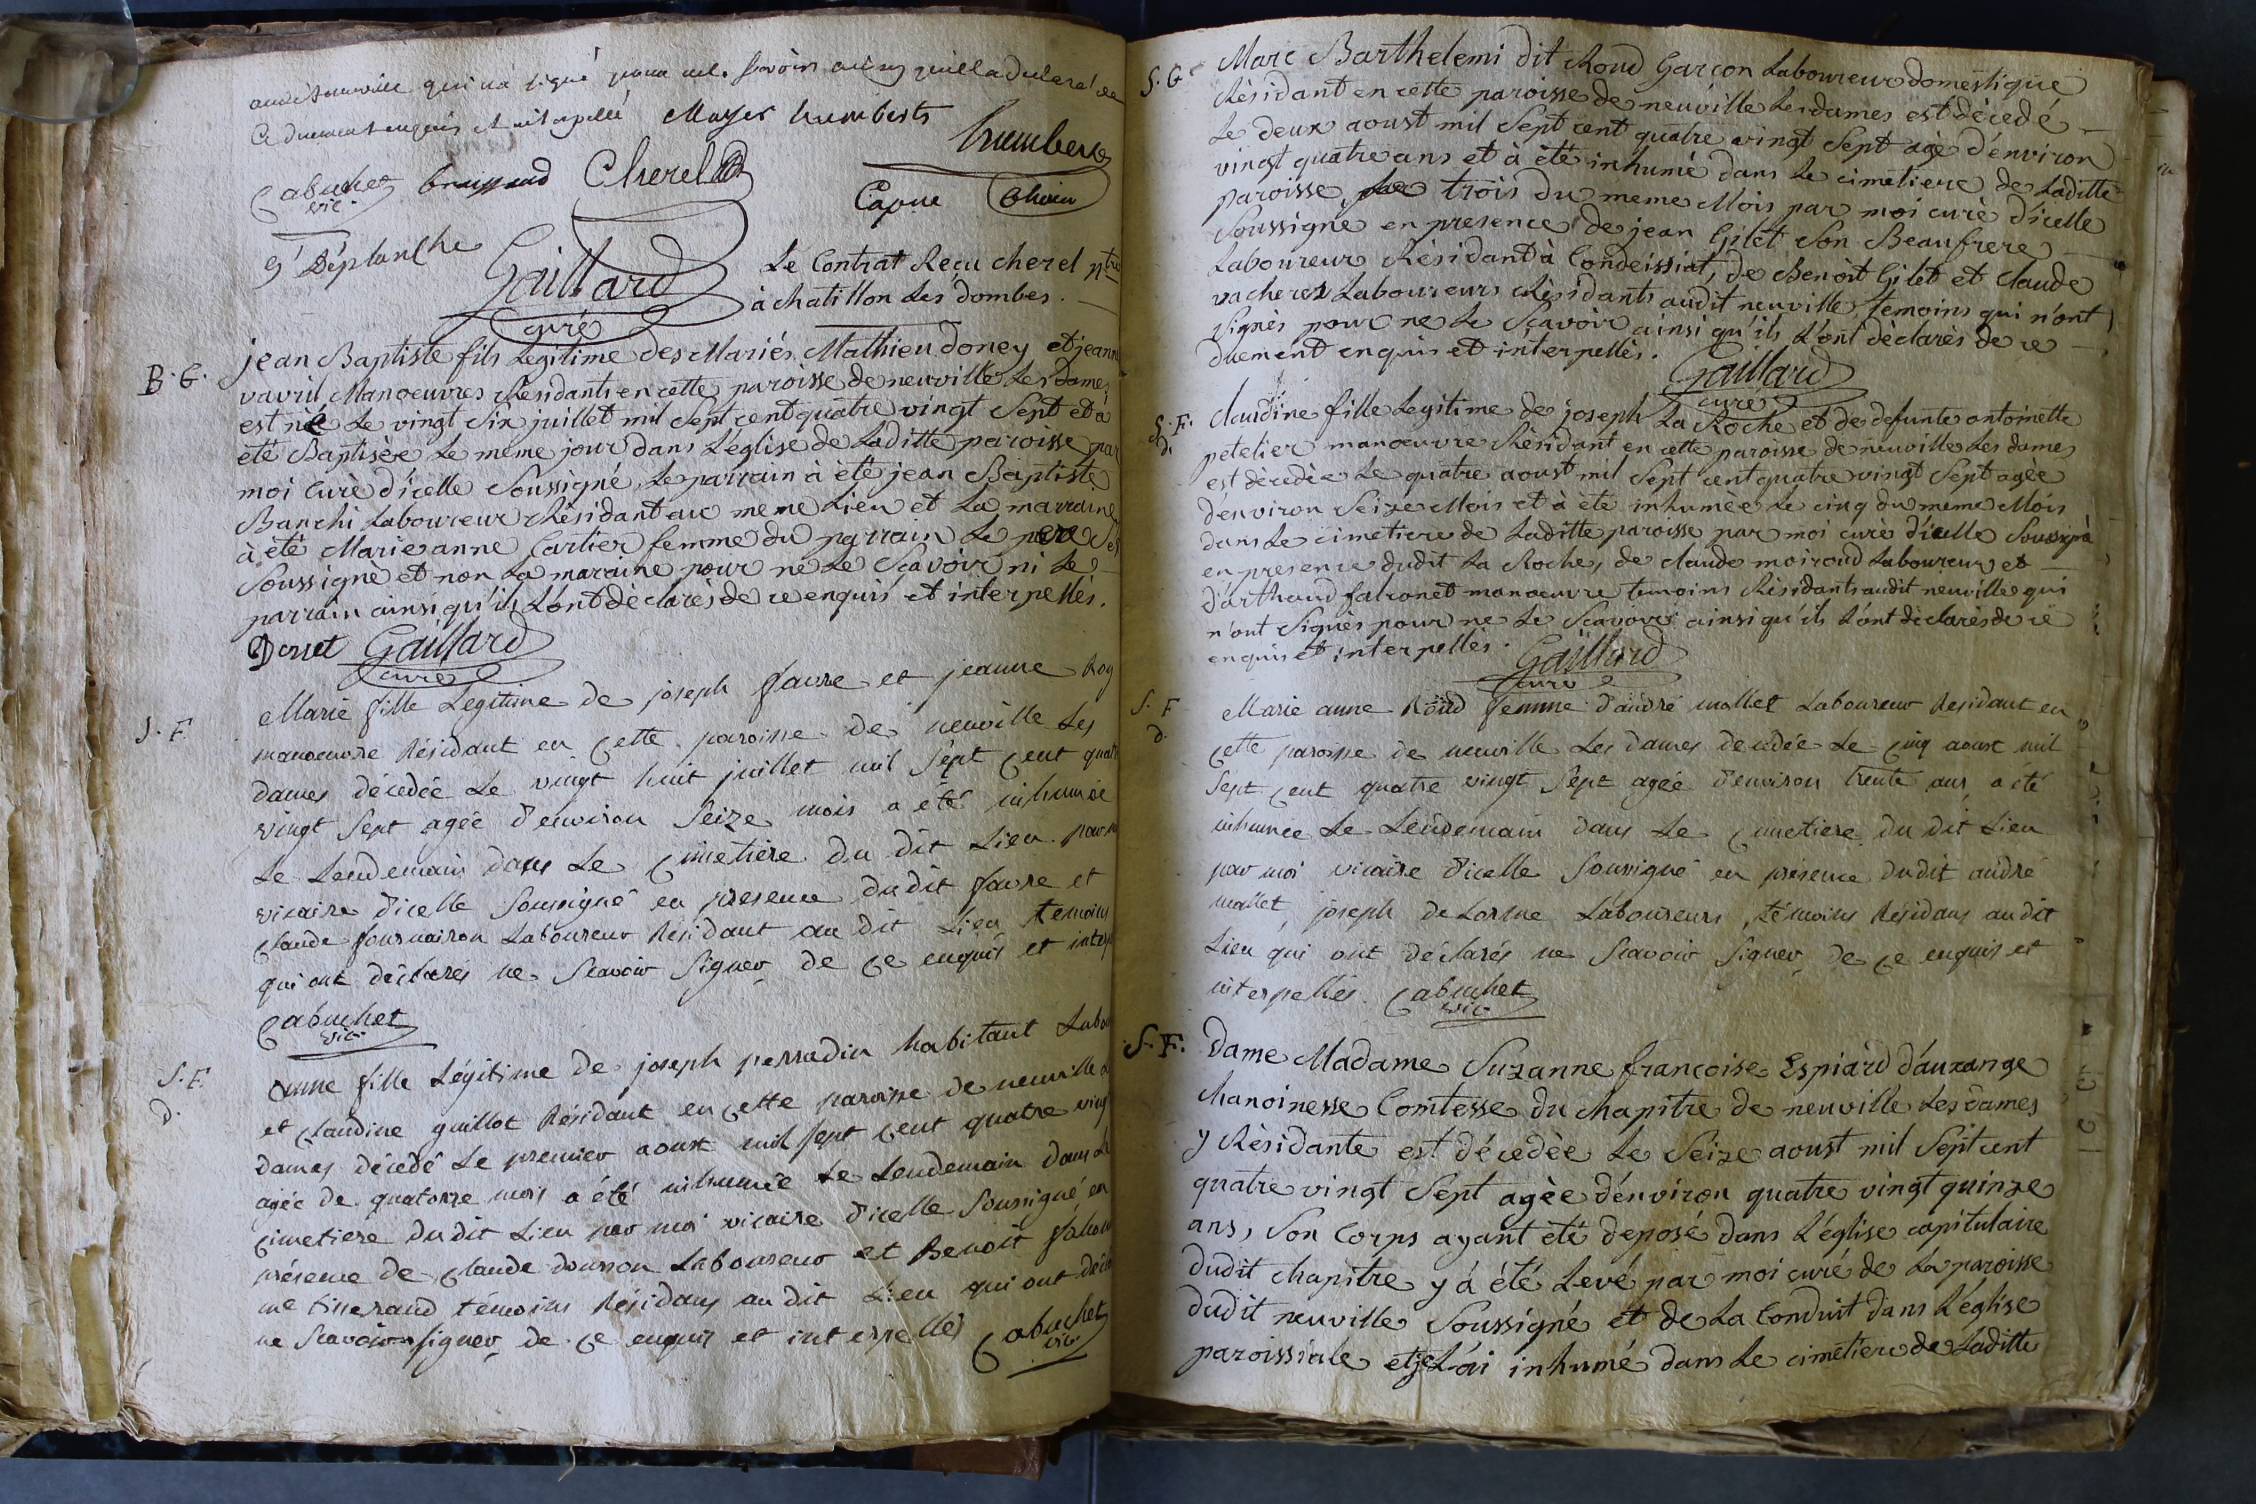 audit neuville qui n'a signé pour ne le sçavoir ainsy qu'il l'a déclaré de
ce duement enquis et interpellé Mayer humberts
humberts
Cabuchet brossand Cherel
vic.
Capue
g' Déplanche
Gaillard
curé
Le Contrat Reçu cherel ntre
à chatillon les dombes.
B. G.
jean Baptiste fils Legitime des Mariés Mathieu doney et jeanne
vavril Manoeuvres Résidants en cette paroisse de neuville Les dames
est né Le vingt Six juillet mil Sept cent quatre vingt Sept et à
été Baptisée Le meme jour dans L'église de Laditte paroisse par
moi Curé d'icelle Soussigné, Le parrain à été jean Baptiste
Banchi Laboureur Résidant au meme Lieu et La marraine
à été Marie anne Cartier femme du parrain Le pere s'est
Soussigné et non La maraine pour ne Le Scavoir ni Le
parrain ainsi qu'ils L'ont déclarés de ce enquis et interpellés.
Donet Gaillard
curé
S. F.
Marie fille Legitime de joseph favre et jeanne Roy
manoeuvre Résidant en cette paroisse de neuville Les
dames décedée Le vingt huit juillet mil Sept cent quatre
vingt Sept agée d'environ Seize mois a été inhumée
Le Lendemain dans Le cimetiere du dit Lieu par m
vicaire d'icelle Soussigné en presence dudit favre et
claude fournairon Laboureur Résidant au dit Lieu temoins
qui ont déclarés ne Scavoir Signer de ce enquis et interp
Cabuchet
vic
S. F.
d.
Anne fille Légitime de joseph perradin habitant Labou
et claudine guillot Résidant en cette paroisse de neuville L
dames décedé Le premier aoust mil Sept cent quatre ving
agée de quatorze mois a été inhumée Le Lendemain dans Le
cimetiere du dit Lieu par moi vicaire d'icelle Soussigné en
présence de claude dousson Laboureur et Benoit falcon
me tisserand témoins Résidans au dit Lieu qui ont décla
ne Scavoir signer de ce enquis et interpellés Cabuchet
vic
S. G.
Marc Barthelemi dit Roud Garçon Laboureur domestique
Résidant en cette paroisse de neuville Les dames est décedé
Le deux aoust mil Sept cent quatre vingt Sept agé d'environ
vingt quatre ans et à été inhumé dans Le cimetiere de Laditte
paroisse Le trois du meme Mois par moi curé d'icelle
Soussigné en presence de jean Gilet Son Beaufrere
Laboureur Résidant à Condeissiat, de Benoit Gilet et claude
vacherez Laboureurs Résidants audit neuville, temoins qui n'ont
Signés pour ne Le Scavoir ainsi qu'ils L'ont déclarés de ce
duement enquis et interpellés.
Gaillard
curé
S. F.
d.
Claudine fille Legitime de joseph La Roche et de defunte antoinette
petelier manoeuvre Résidant en cette paroisse de neuville Les dames
est décedée Le quatre aoust mil Sept cent quatre vingt Sept agée
d'environ Seize Mois et à été inhumée Le cinq du meme Mois
dans Le cimetiere de Laditte paroisse par moi curé d'icelle Soussigné
en presence dudit La Roche, de claude moiroud Laboureur et
d'arthaud falconet manoeuvre temoins Résidants audit neuville qui
n'ont Signés pour ne Le Scavoir ainsi qu'ils L'ont déclarés de ce
enquis et interpellés.
Gaillard
curé
S. F.
d.
Marie anne Roud femme d'andré mallet Laboureur Residant en
cette paroisse de neuville Les dames decedée Le cinq aoust mil
Sept cent quatre vingt Sept agée d'environ trente ans, a été
inhumée Le Lendemain dans Le cimetiere du dit Lieu
par moi vicaire d'icelle Soussigné en présence dudit andré
mallet, joseph de Lorme Laboureurs, témoins Résidans au dit
Lieu qui ont déclarés ne Scavoir Signer de ce enquis et
interpellés. Cabuchet
vic
S. F.
Dame Madame Suzanne françoise Espiard d'auxange
chanoinesse Comtesse du chapitre de neuville Les dames
y Résidante est décedée Le Seize aoust mil Sept cent
quatre vingt Sept agée d'environ quatre vingt quinze
ans, Son Corps ayant été deposé dans L'église capitulaire
dudit chapitre y à été Levé par moi curé de La paroisse
dudit neuville Soussigné et de La Conduit dans L'église
paroissiale et je L'ai inhumé dans Le cimetiere de Laditte